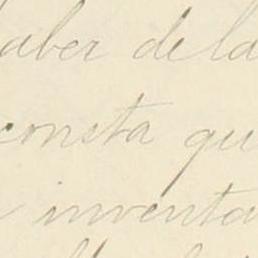 haber de la
consta qu
inventa